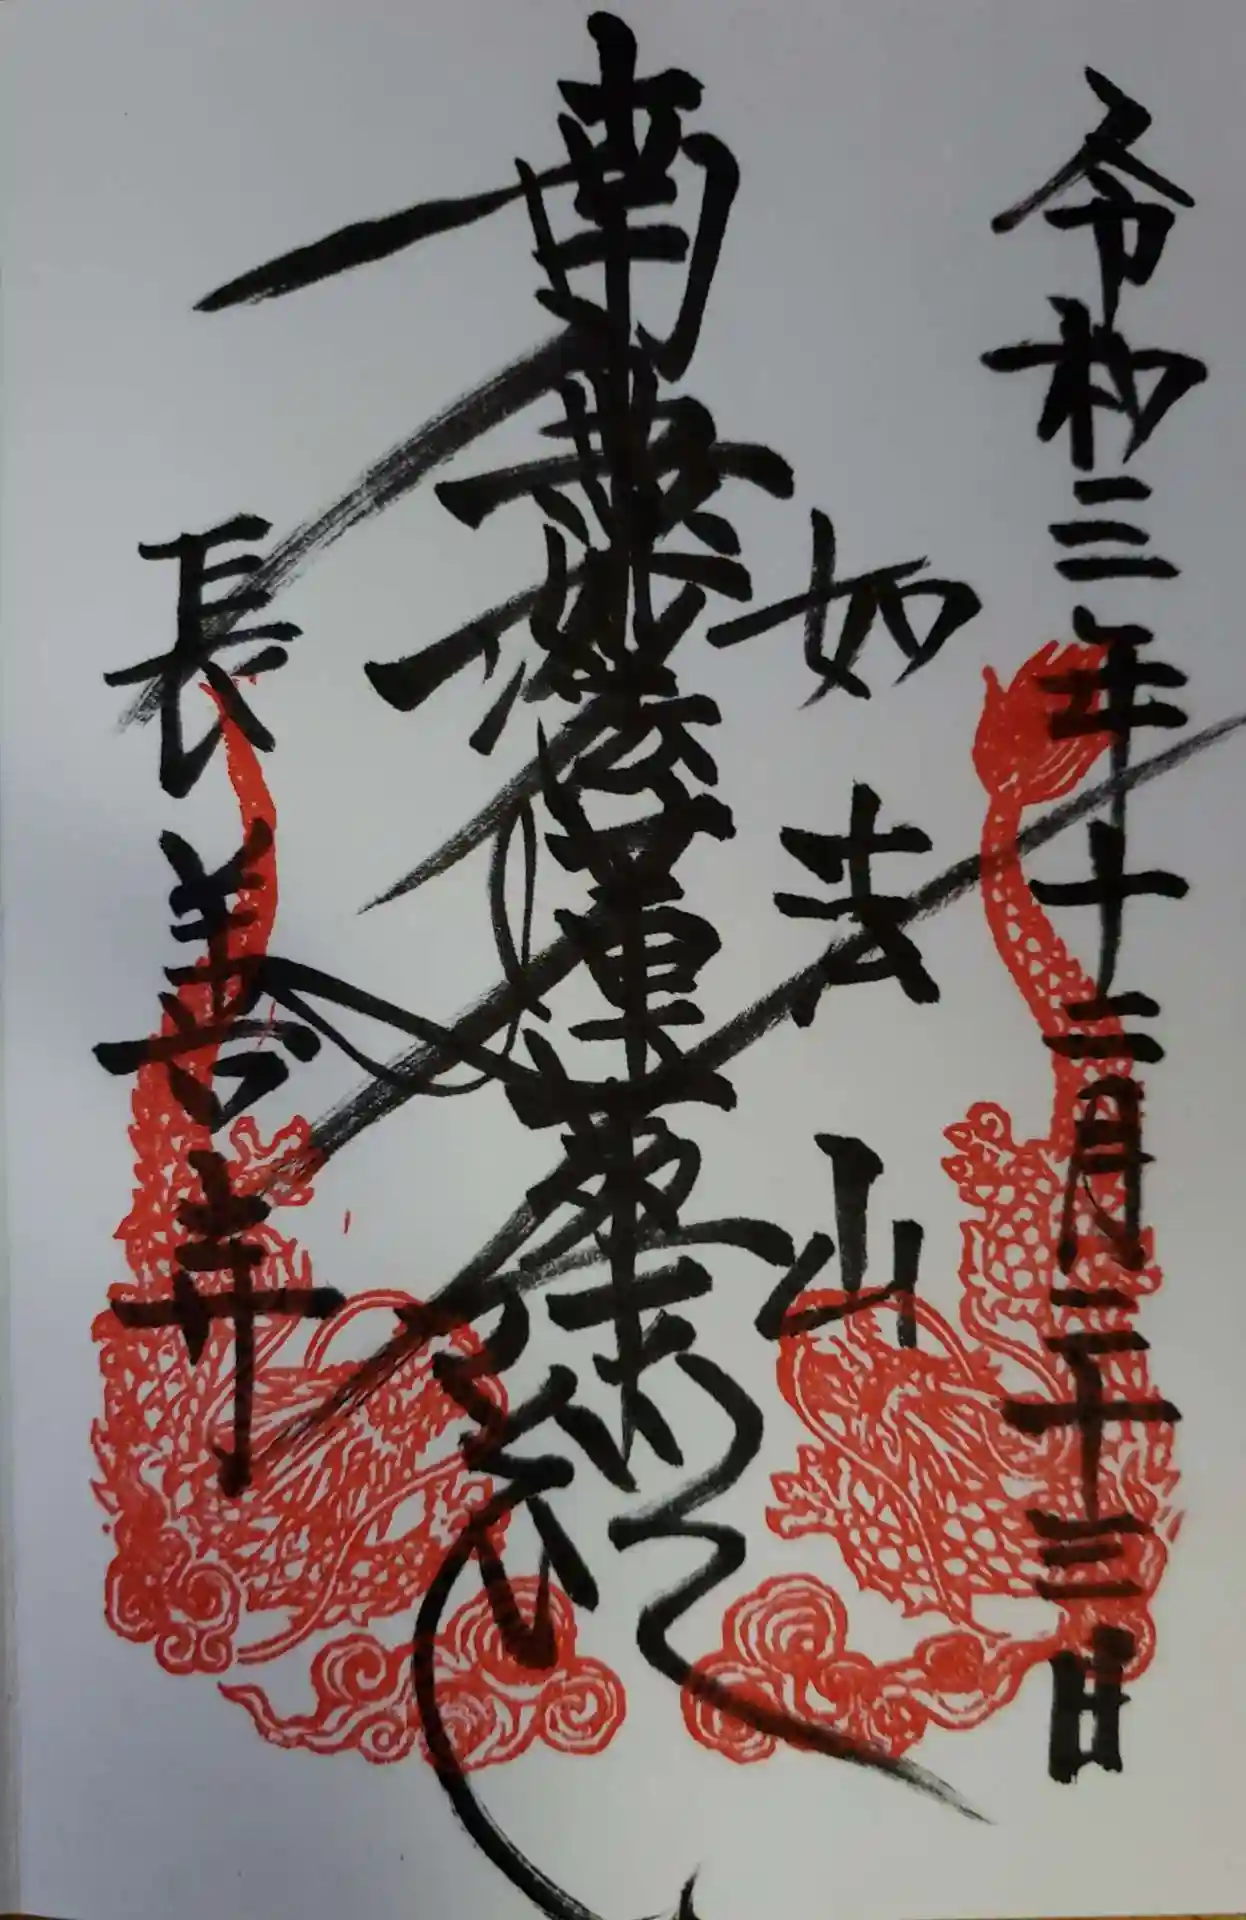 令和三年十二月二十三日
如法山
南無妙法蓮華経
長善寺